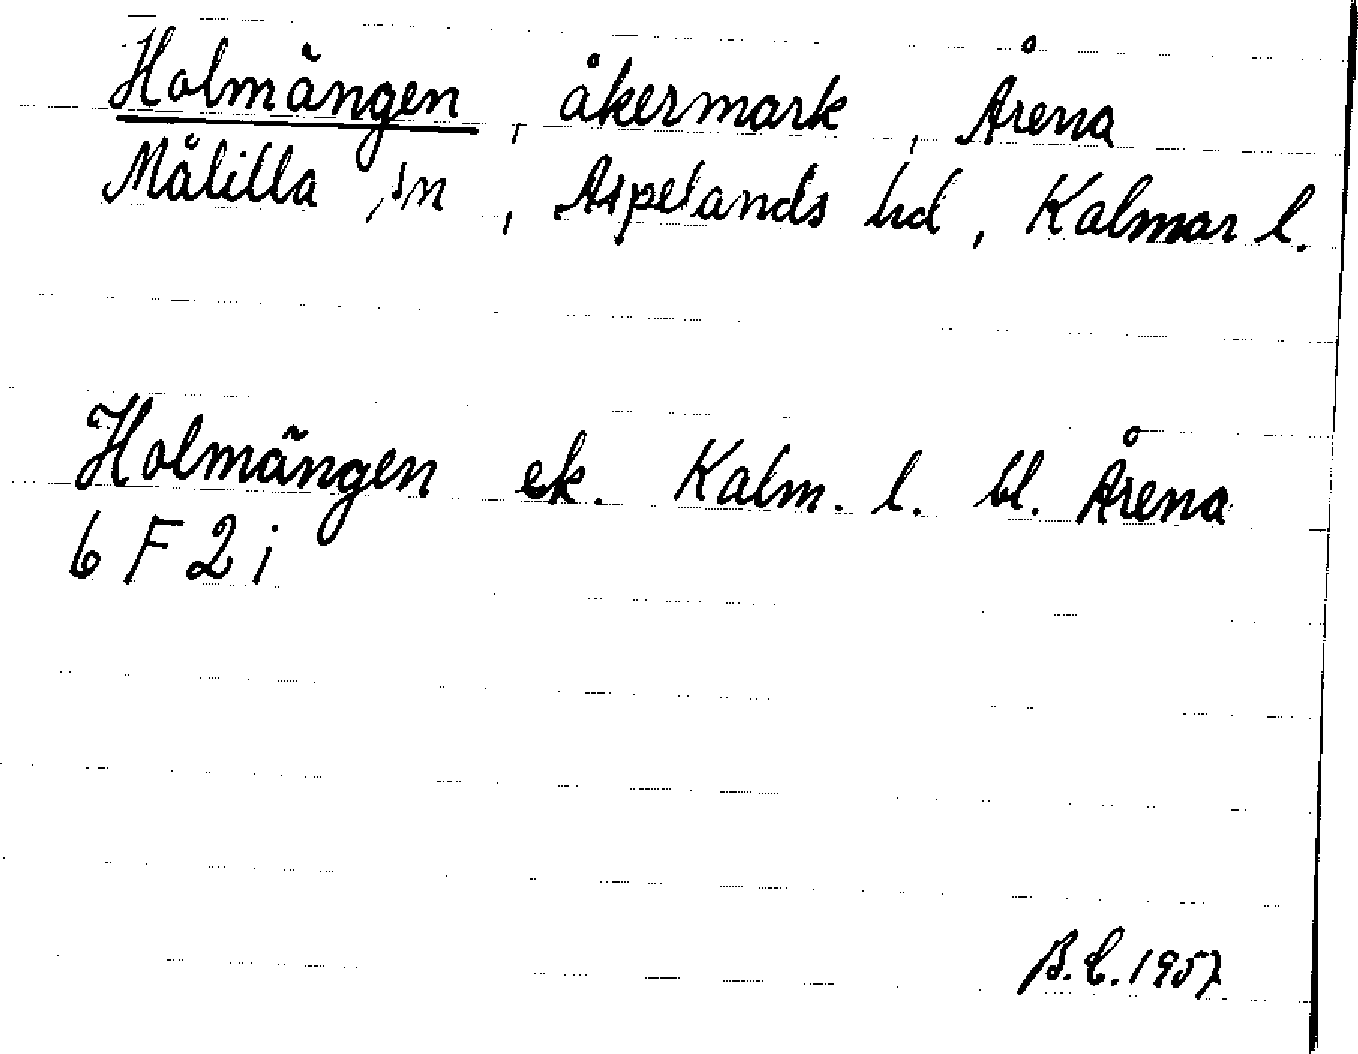 Holmängen, åkermark, Årena
Målilla sn, Aspelands hd, Kalmar l.
Holmängen ek. Kalm. l. bl. Årena
6 F 2 i
B.C. 1957